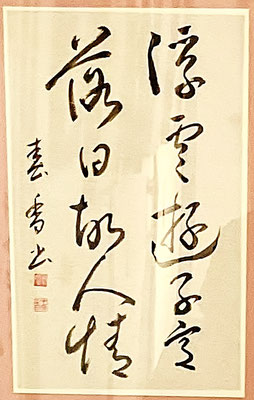 浮雲遊子意
落日故人情
春香书